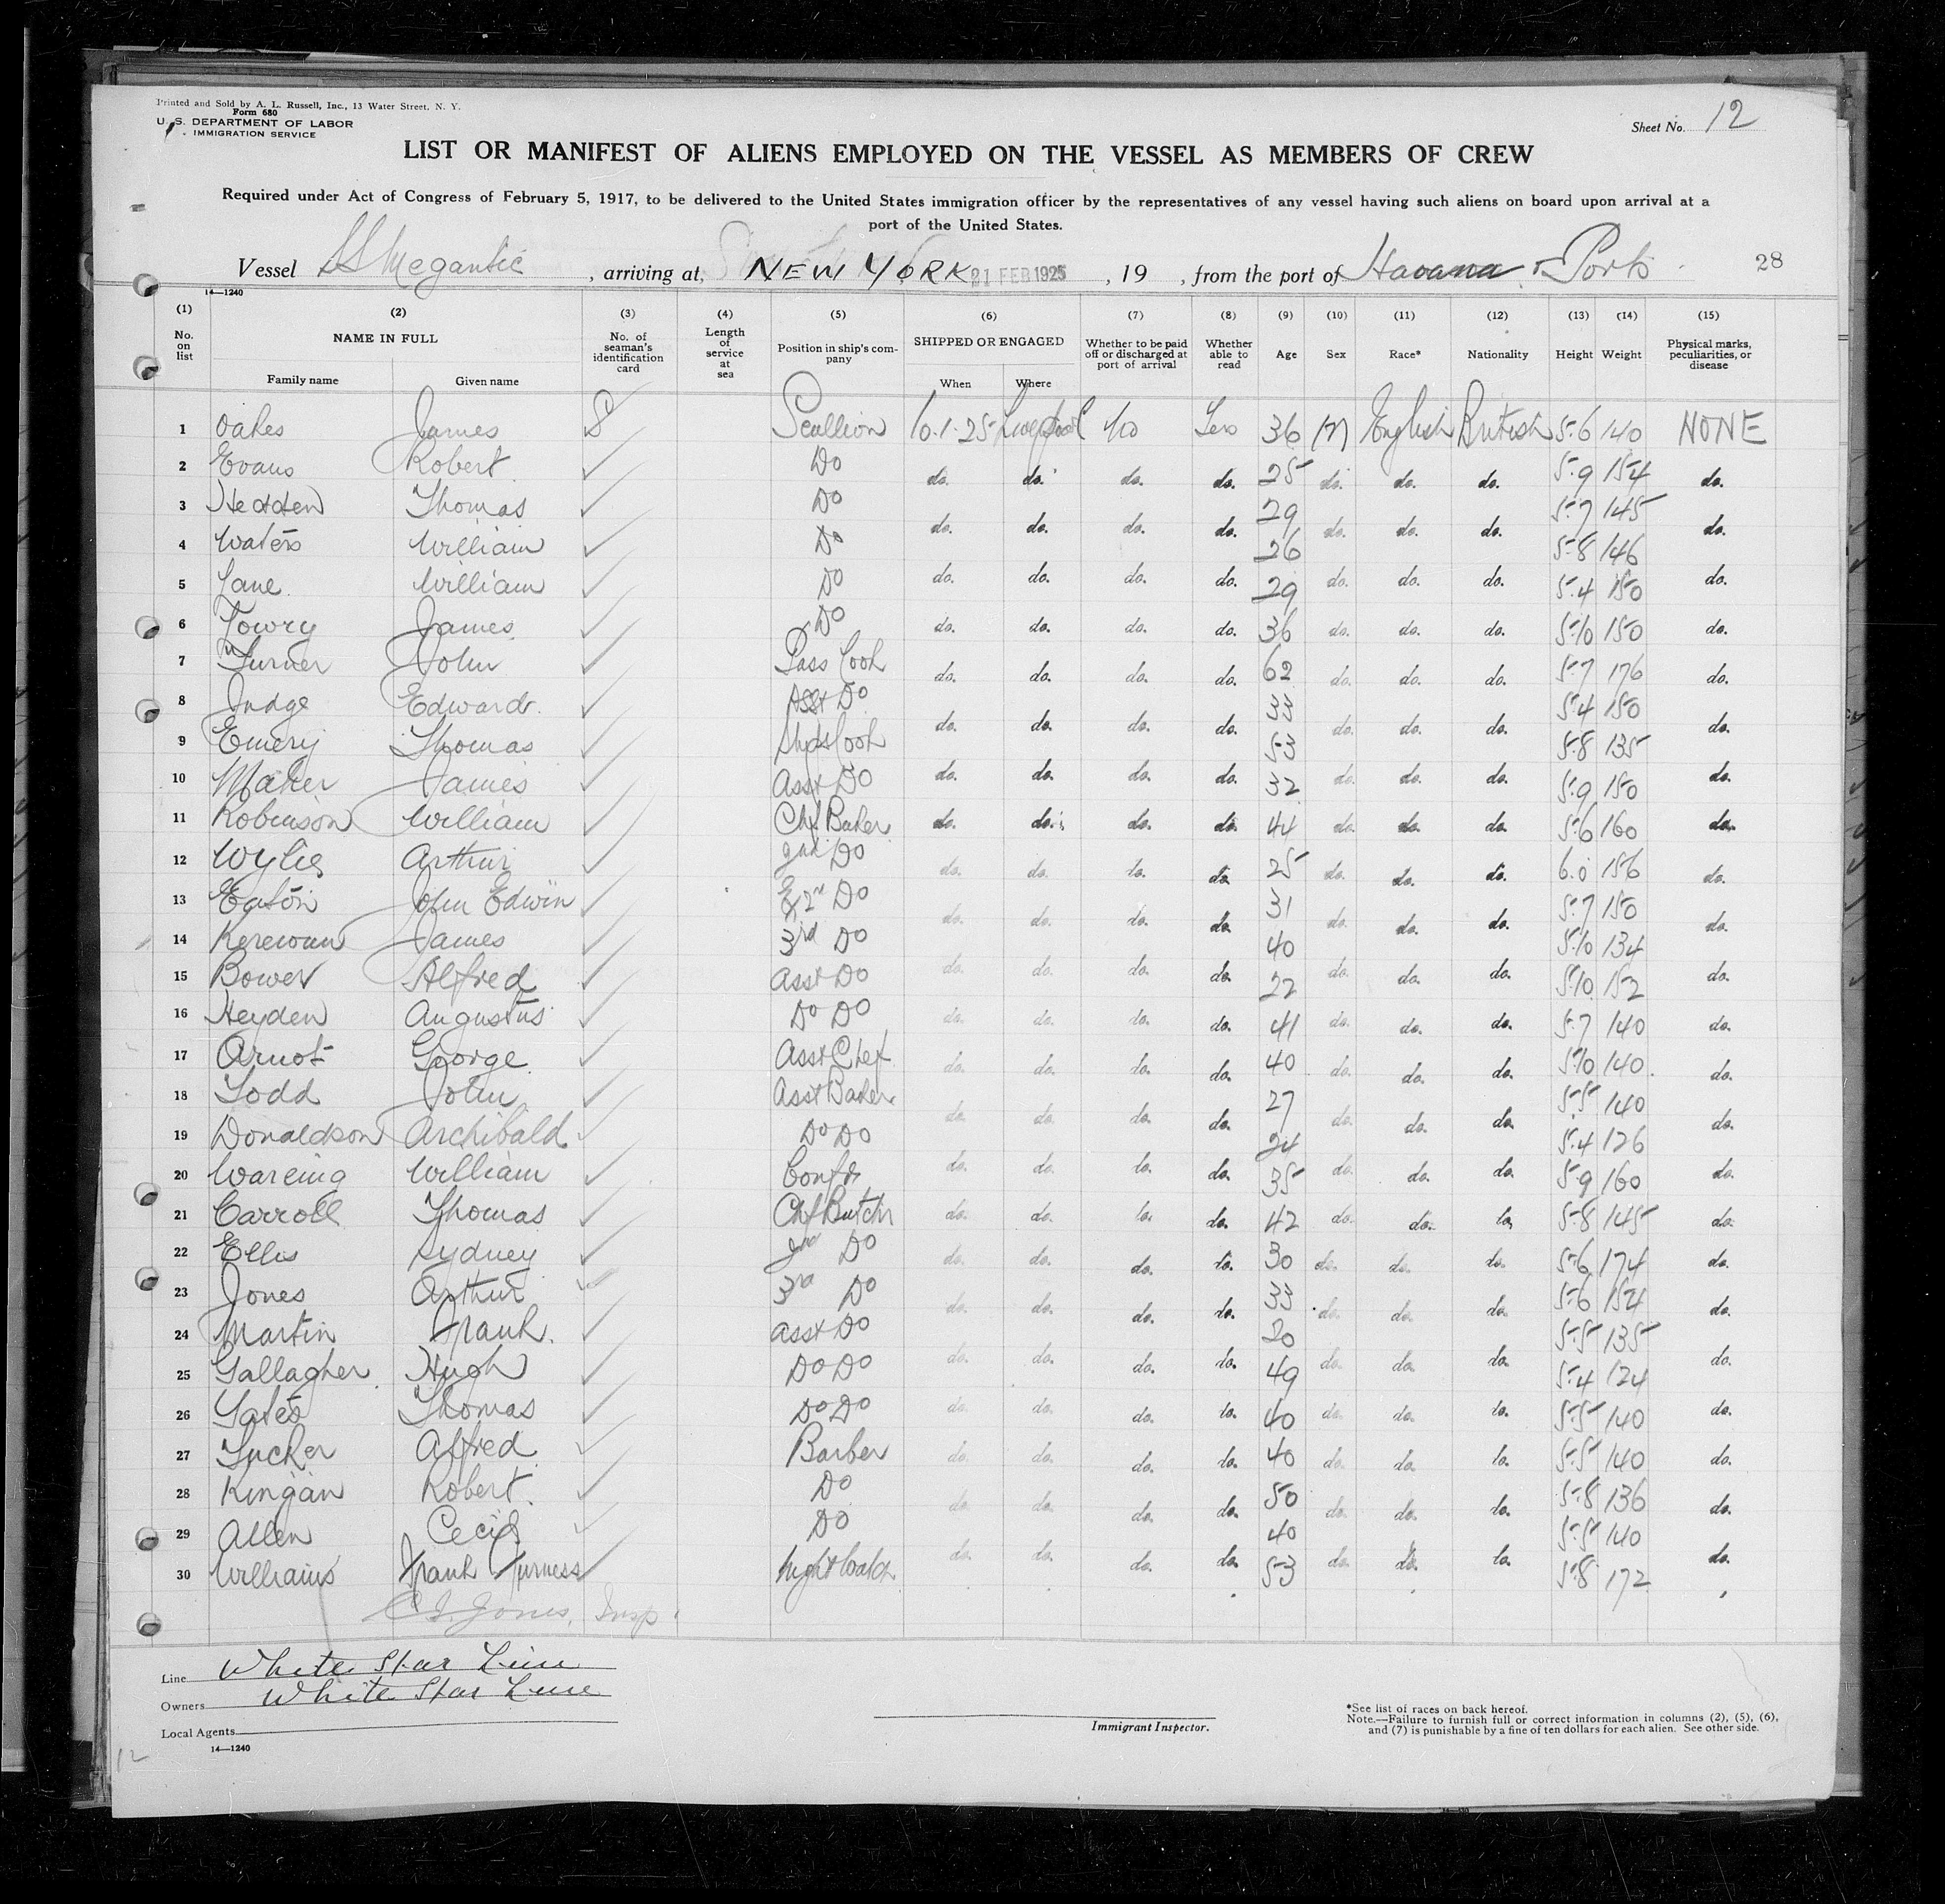 Printed and Sold by A. L. Russell, Inc., 13 Water Street, N. Y.
Form 680
U. S. DEPARTMENT OF LABOR
IMMIGRATION SERVICE
Sheet No. 12
LIST OR MANIFEST OF ALIENS EMPLOYED ON THE VESSEL AS MEMBERS OF CREW
Required under Act of Congress of February 5, 1917, to be delivered to the United States immigration officer by the representatives of any vessel having such aliens on board upon arrival at a
port of the United States.
Vessel SS Megantic, arriving at, NEW YORK 21 FEB 1925, 19 , from the port of Havana & Ports 28
14—1240
(1) (2) (3) (4) (5) (6) (7) (8) (9) (10) (11) (12) (13) (14) (15)
No. on list NAME IN FULL No. of seaman's identification card Length of service at sea Position in ship's company SHIPPED OR ENGAGED Whether to be paid off or discharged at port of arrival Whether able to read Age Sex Race* Nationality Height Weight Physical marks, peculiarities, or disease
Family name Given name When Where
1 Oakes James Scullion 10.1.25 Liverpool No Yes 36 M English British 5.6 140 NONE
2 Evans Robert Do do. do. do. do. 25 do. do. do. 5.9 154 do.
3 Hedden Thomas Do do. do. do. do. 29 do. do. do. 5.7 145 do.
4 Waters William Do do. do. do. do. 26 do. do. do. 5.8 146 do.
5 Lane William Do do. do. do. do. 29 do. do. do. 5.4 150 do.
6 Lowry James Do do. do. do. do. 36 do. do. do. 5.10 150 do.
7 Turner John Pass Cook do. do. do. do. 62 do. do. do. 5.7 176 do.
8 Judge Edward Asst Do do. do. do. do. 33 do. do. do. 5.4 150 do.
9 Emery Thomas Shps Cook do. do. do. do. 53 do. do. do. 5.8 135 do.
10 Maher James Asst Do do. do. do. do. 32 do. do. do. 5.9 150 do.
11 Robinson William Chf Baker do. do. do. do. 44 do. do. do. 5.6 160 do.
12 Wylie Arthur 2nd Do do. do. do. do. 25 do. do. do. 6.0 156 do.
13 Eaton John Edwin Ex 2nd Do do. do. do. do. 31 do. do. do. 5.7 150 do.
14 James 3rd Do do. do. do. do. 40 do. do. do. 5.10 134 do.
15 Bower Alfred Asst Do do. do. do. do. 22 do. do. do. 5.10 152 do.
16 Heyden Augustus Do Do do. do. do. do. 41 do. do. do. 5.7 140 do.
17 Arnot George Asst Chef do. do. do. do. 40 do. do. do. 5.10 140 do.
18 Todd John Asst Baker do. do. do. do. 27 do. do. do. 5.5 140 do.
19 Donaldson Archibald Do Do do. do. do. do. 24 do. do. do. 5.4 126 do.
20 Wareing William Confr do. do. do. do. 35 do. do. do. 5.9 160 do.
21 Carroll Thomas Chf Butchr do. do. do. do. 42 do. do. do. 5.8 145 do.
22 Ellis Sydney 2nd Do do. do. do. do. 30 do. do. do. 5.6 174 do.
23 Jones Arthur 3rd Do do. do. do. do. 33 do. do. do. 5.6 154 do.
24 Martin Frank Asst Do do. do. do. do. 20 do. do. do. 5.5 135 do.
25 Gallagher Hugh Do Do do. do. do. do. 49 do. do. do. 5.4 124 do.
26 Yates Thomas Do Do do. do. do. do. 40 do. do. do. 5.5 140 do.
27 Tucker Alfred Barber do. do. do. do. 40 do. do. do. 5.5 140 do.
28 Kingan Robert Do do. do. do. do. 50 do. do. do. 5.8 136 do.
29 Allen Cecil Do do. do. do. do. 40 do. do. do. 5.5 140 do.
30 Williams Frank Furness Night Watch 53 5.8 172
Jones, Insp.
Line White Star Line
Owners White Star Line
Local Agents
Immigrant Inspector.
*See list of races on back hereof.
Note.—Failure to furnish full or correct information in columns (2), (5), (6),
and (7) is punishable by a fine of ten dollars for each alien. See other side.
14—1240
12